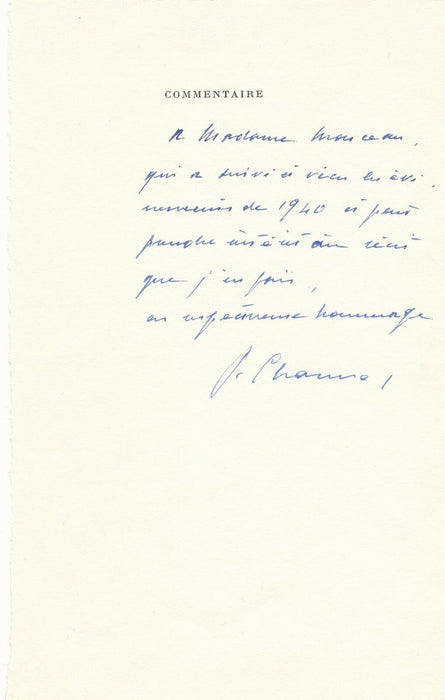 COMMENTAIRE
A Madame Monceau,
qui a suivi et vécu les évé-
nements de 1940 et peut
prendre intérêt au récit
que j'en fais,
en respectueux hommage
J. Chauvel